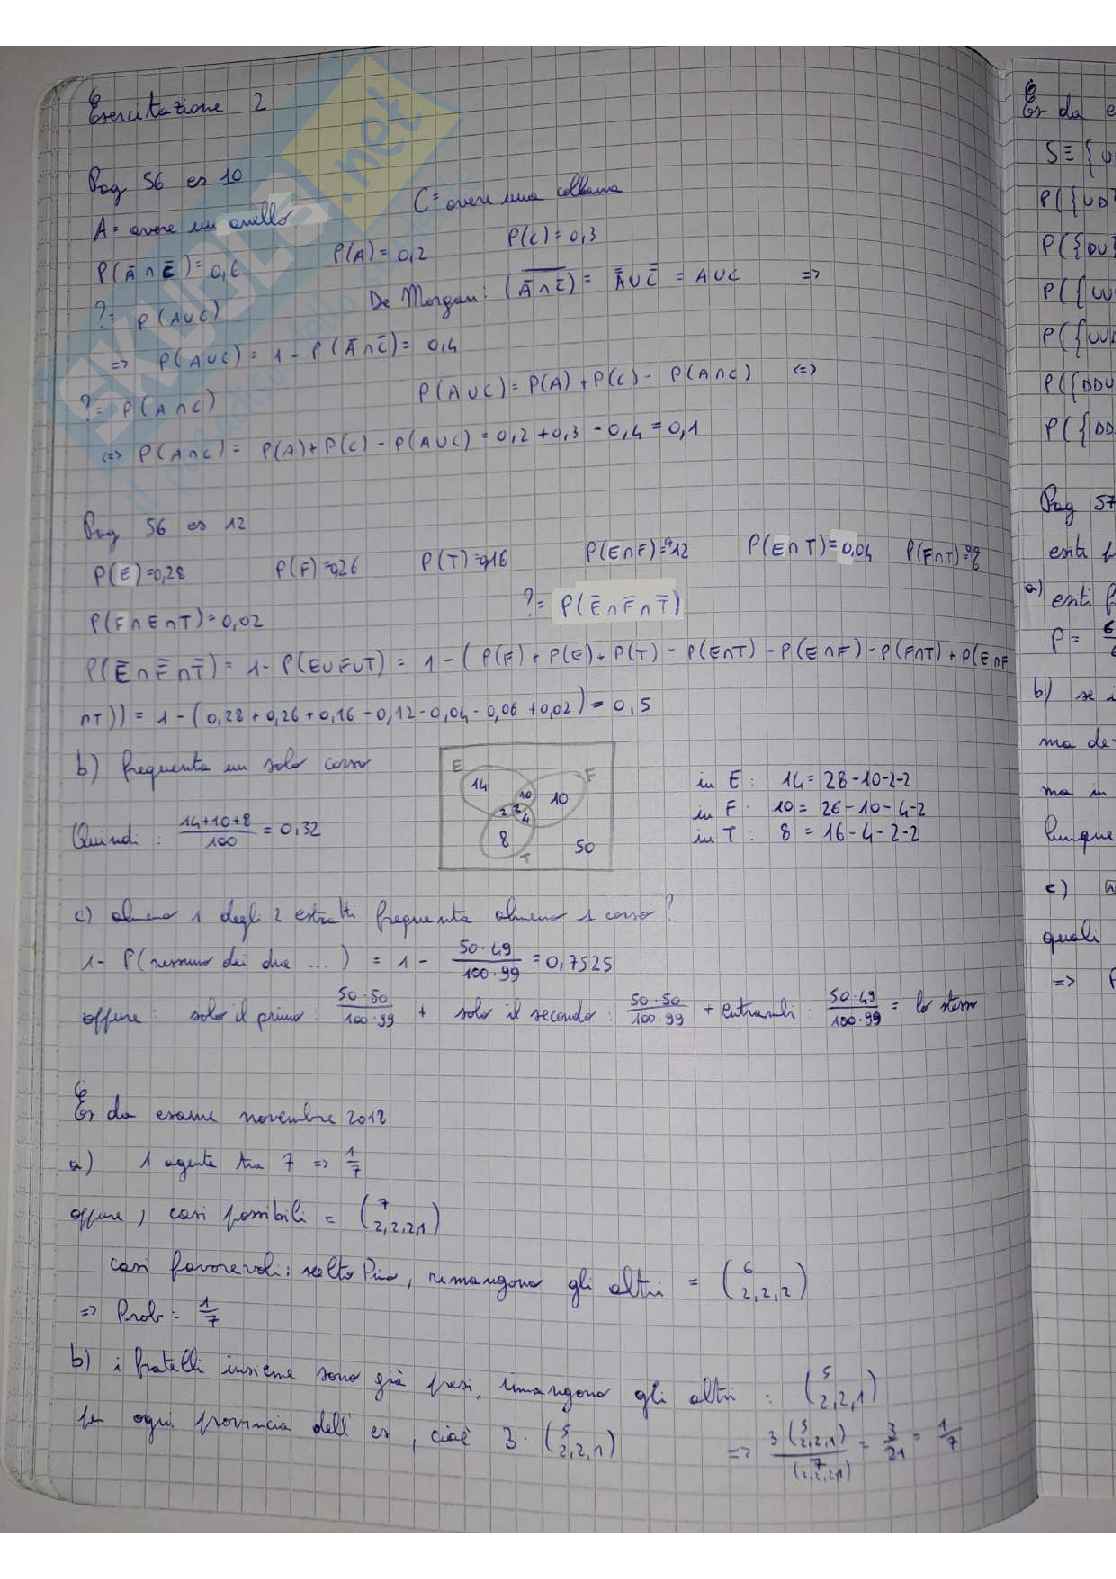 Esercitazione 2
Pag 56 es 10
A= avere un anello C= avere una collana
P(A̅ ∩ C̅)=0,6 P(A)=0,2 P(C)=0,3
?= P(A∪C) De Morgan: (A̅ ∩ C̅)‾ = A̿ ∪ C̿ = A∪C =>
=> P(A∪C) = 1 - P(A̅ ∩ C̅) = 0,4
?= P(A∩C) P(A∪C) = P(A) + P(C) - P(A∩C) <=>
<=> P(A∩C) = P(A) + P(C) - P(A∪C) = 0,2 + 0,3 - 0,4 = 0,1
Pag 56 es 12
P(E)=0,28 P(F)=0,26 P(T)=0,16 P(E∩F)=0,12 P(E∩T)=0,04 P(F∩T)=0,06
P(F∩E∩T)=0,02 ?= P(E̅ ∩ F̅ ∩ T̅)
P(E̅ ∩ F̅ ∩ T̅) = 1 - P(E∪F∪T) = 1 - (P(F) + P(E) + P(T) - P(E∩T) - P(E∩F) - P(F∩T) + P(E∩F
∩T)) = 1 - (0,28 + 0,26 + 0,16 - 0,12 - 0,04 - 0,06 + 0,02) = 0,5
b) frequenta un solo corso
E F T 14 10 10 2 2 4 8 50
in E: 14 = 28-10-2-2
in F: 10 = 26-10-4-2
in T: 8 = 16-4-2-2
Quindi: 14+10+8/100 = 0,32
c) almeno 1 degli 2 estratti frequenta almeno 1 corso?
1- P(nessuno dei due ...) = 1 - 50·49/100·99 = 0,7525
oppure: solo il primo: 50·50/100·99 + solo il secondo: 50·50/100·99 + entrambi: 50·49/100·99 = lo stesso
Es da esame novembre 2012
a) 1 agente tra 7 => 1/7
oppure, casi possibili = (7 2,2,2,1)
casi favorevoli: scelto Pino, rimangono gli altri = (6 2,2,2)
=> Prob = 1/7
b) i fratelli insieme sono già presi, rimangono gli altri: (5 2,2,1)
per ogni provincia dell' es, cioè 3·(5 2,2,1) => 3(5 2,2,1)/(7 2,2,2,1) = 3/21 = 1/7
Es da e
S≡{U
P({UD
P({DU}
P({UU
P({UU
P({DDU
P({DD
Pag 57
a) esiti f
P= 6
b) se
ma de-
ma in
lunque
c)
quali
=> P
SKUOLA.net